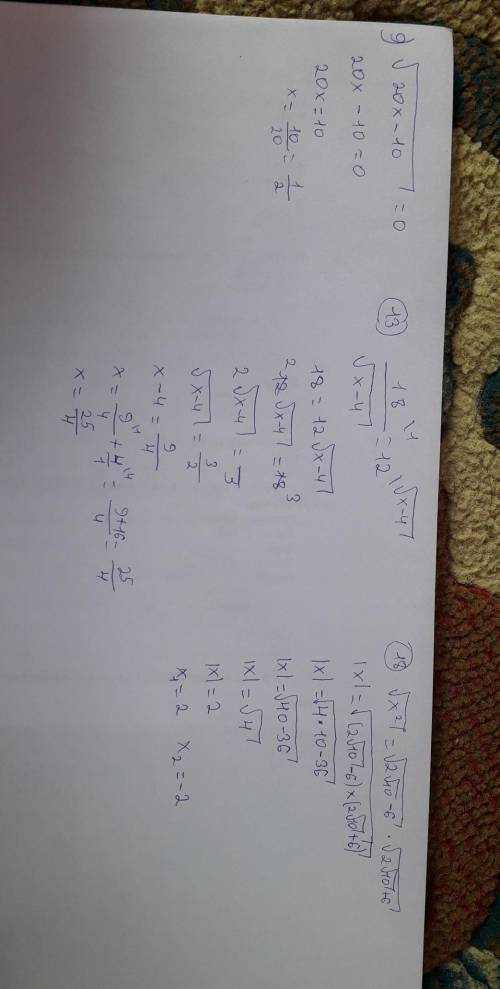 9) √20x-10 = 0
20x - 10 = 0
20x = 10
x = 10/20 = 1/2
13) 18/√x-4 = 12
18 = 12√x-4
12√x-4 = 18
2√x-4 = 3
√x-4 = 3/2
x-4 = 9/4
x = 9/4 + 4/1 = 9+16/4 = 25/4
x = 25/4
18) √x² = √2√10-6 · √2√10+6
|x| = √(2√10-6)×(2√10+6)
|x| = √4*10-36
|x| = √40-36
|x| = √4
|x| = 2
x₁ = 2 x₂ = -2